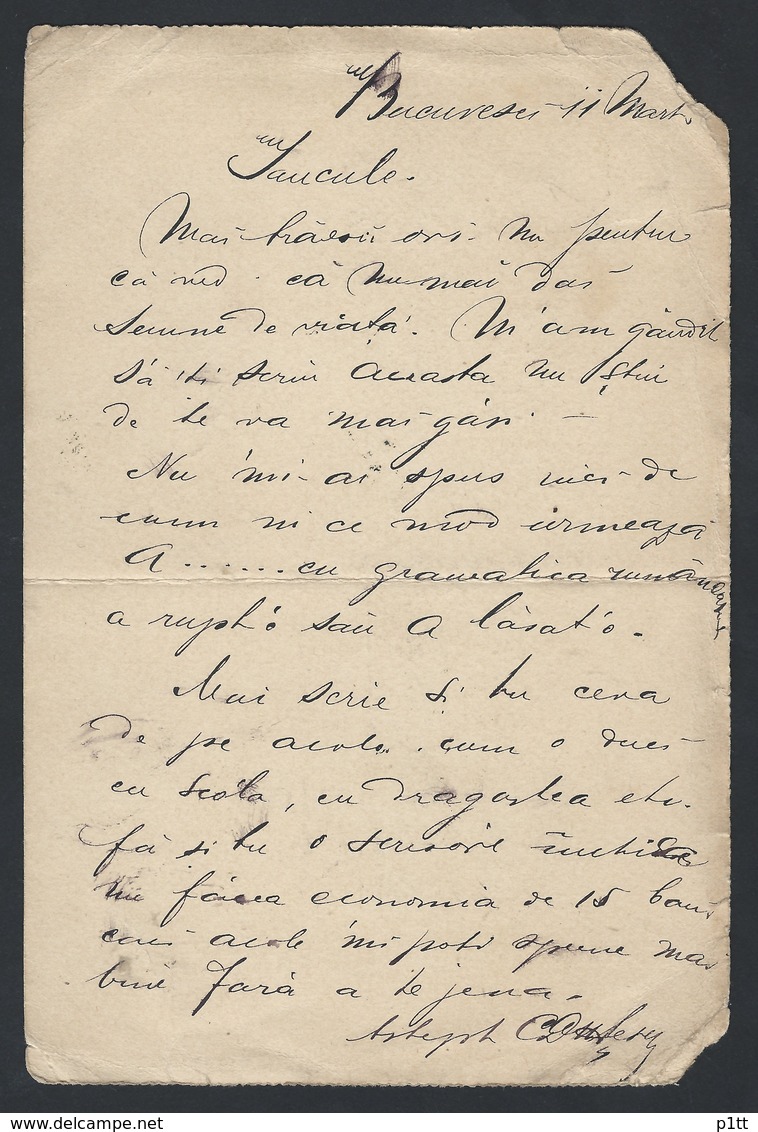 Bucuresci 11 Mart.
Iancule.
Mai trăesci ori nu pentru
că văd că nu mai dai
semne de viată. M'am găndit
să 'ti scriu acasta nu știu
de te va mai găsi —
Nu 'mi-ai spus nici de
cum ni ce mod urmează
A....... cu gramatica românească
a rupt'o saŭ a lăsat'o.
Mai scrie și tu ceva
de pe acolo. cum o duci
cu scóla, cu dragostea etc.
fă si tu o scrisóre închisă
nu făcea economia de 15 bani
căci acolo 'mi poti spune mai
bine fară a te jena.
Astept
delcampe.net
p1tt